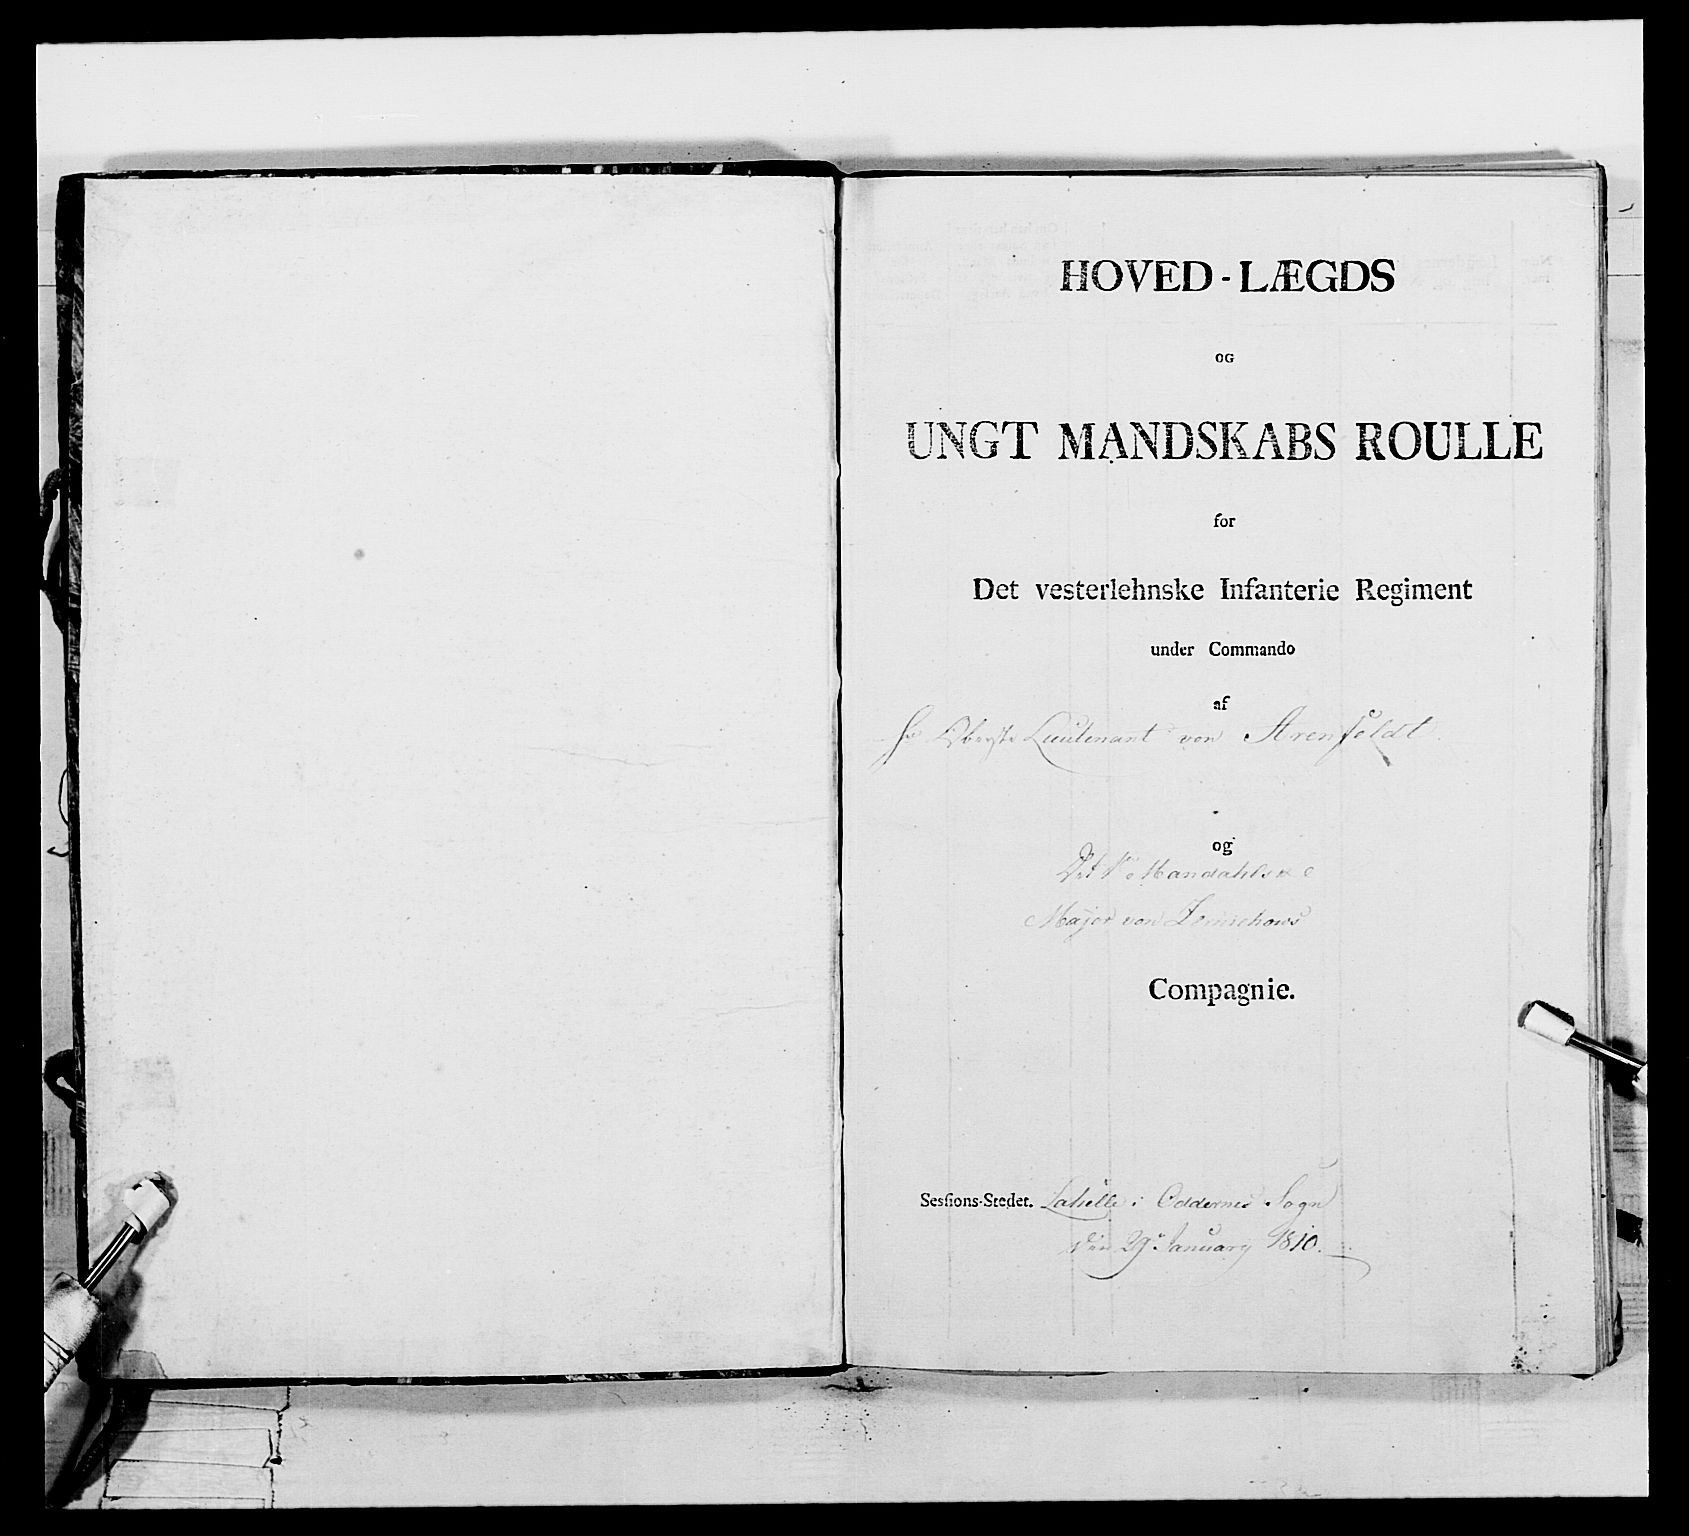 HOVED-LÆGDS
OG
UNGT MANDSKABS ROULLE
for
Det vesterlehnske Infanterie Regiment
under Commando
af
Hr Oberste Lieutenant von Arenfeldt.
og
Det Mandahlske
Major von
Compagnie.
Sessions-Stedet. Lahelle i Oddernes Sogn
den 29 January 1810.